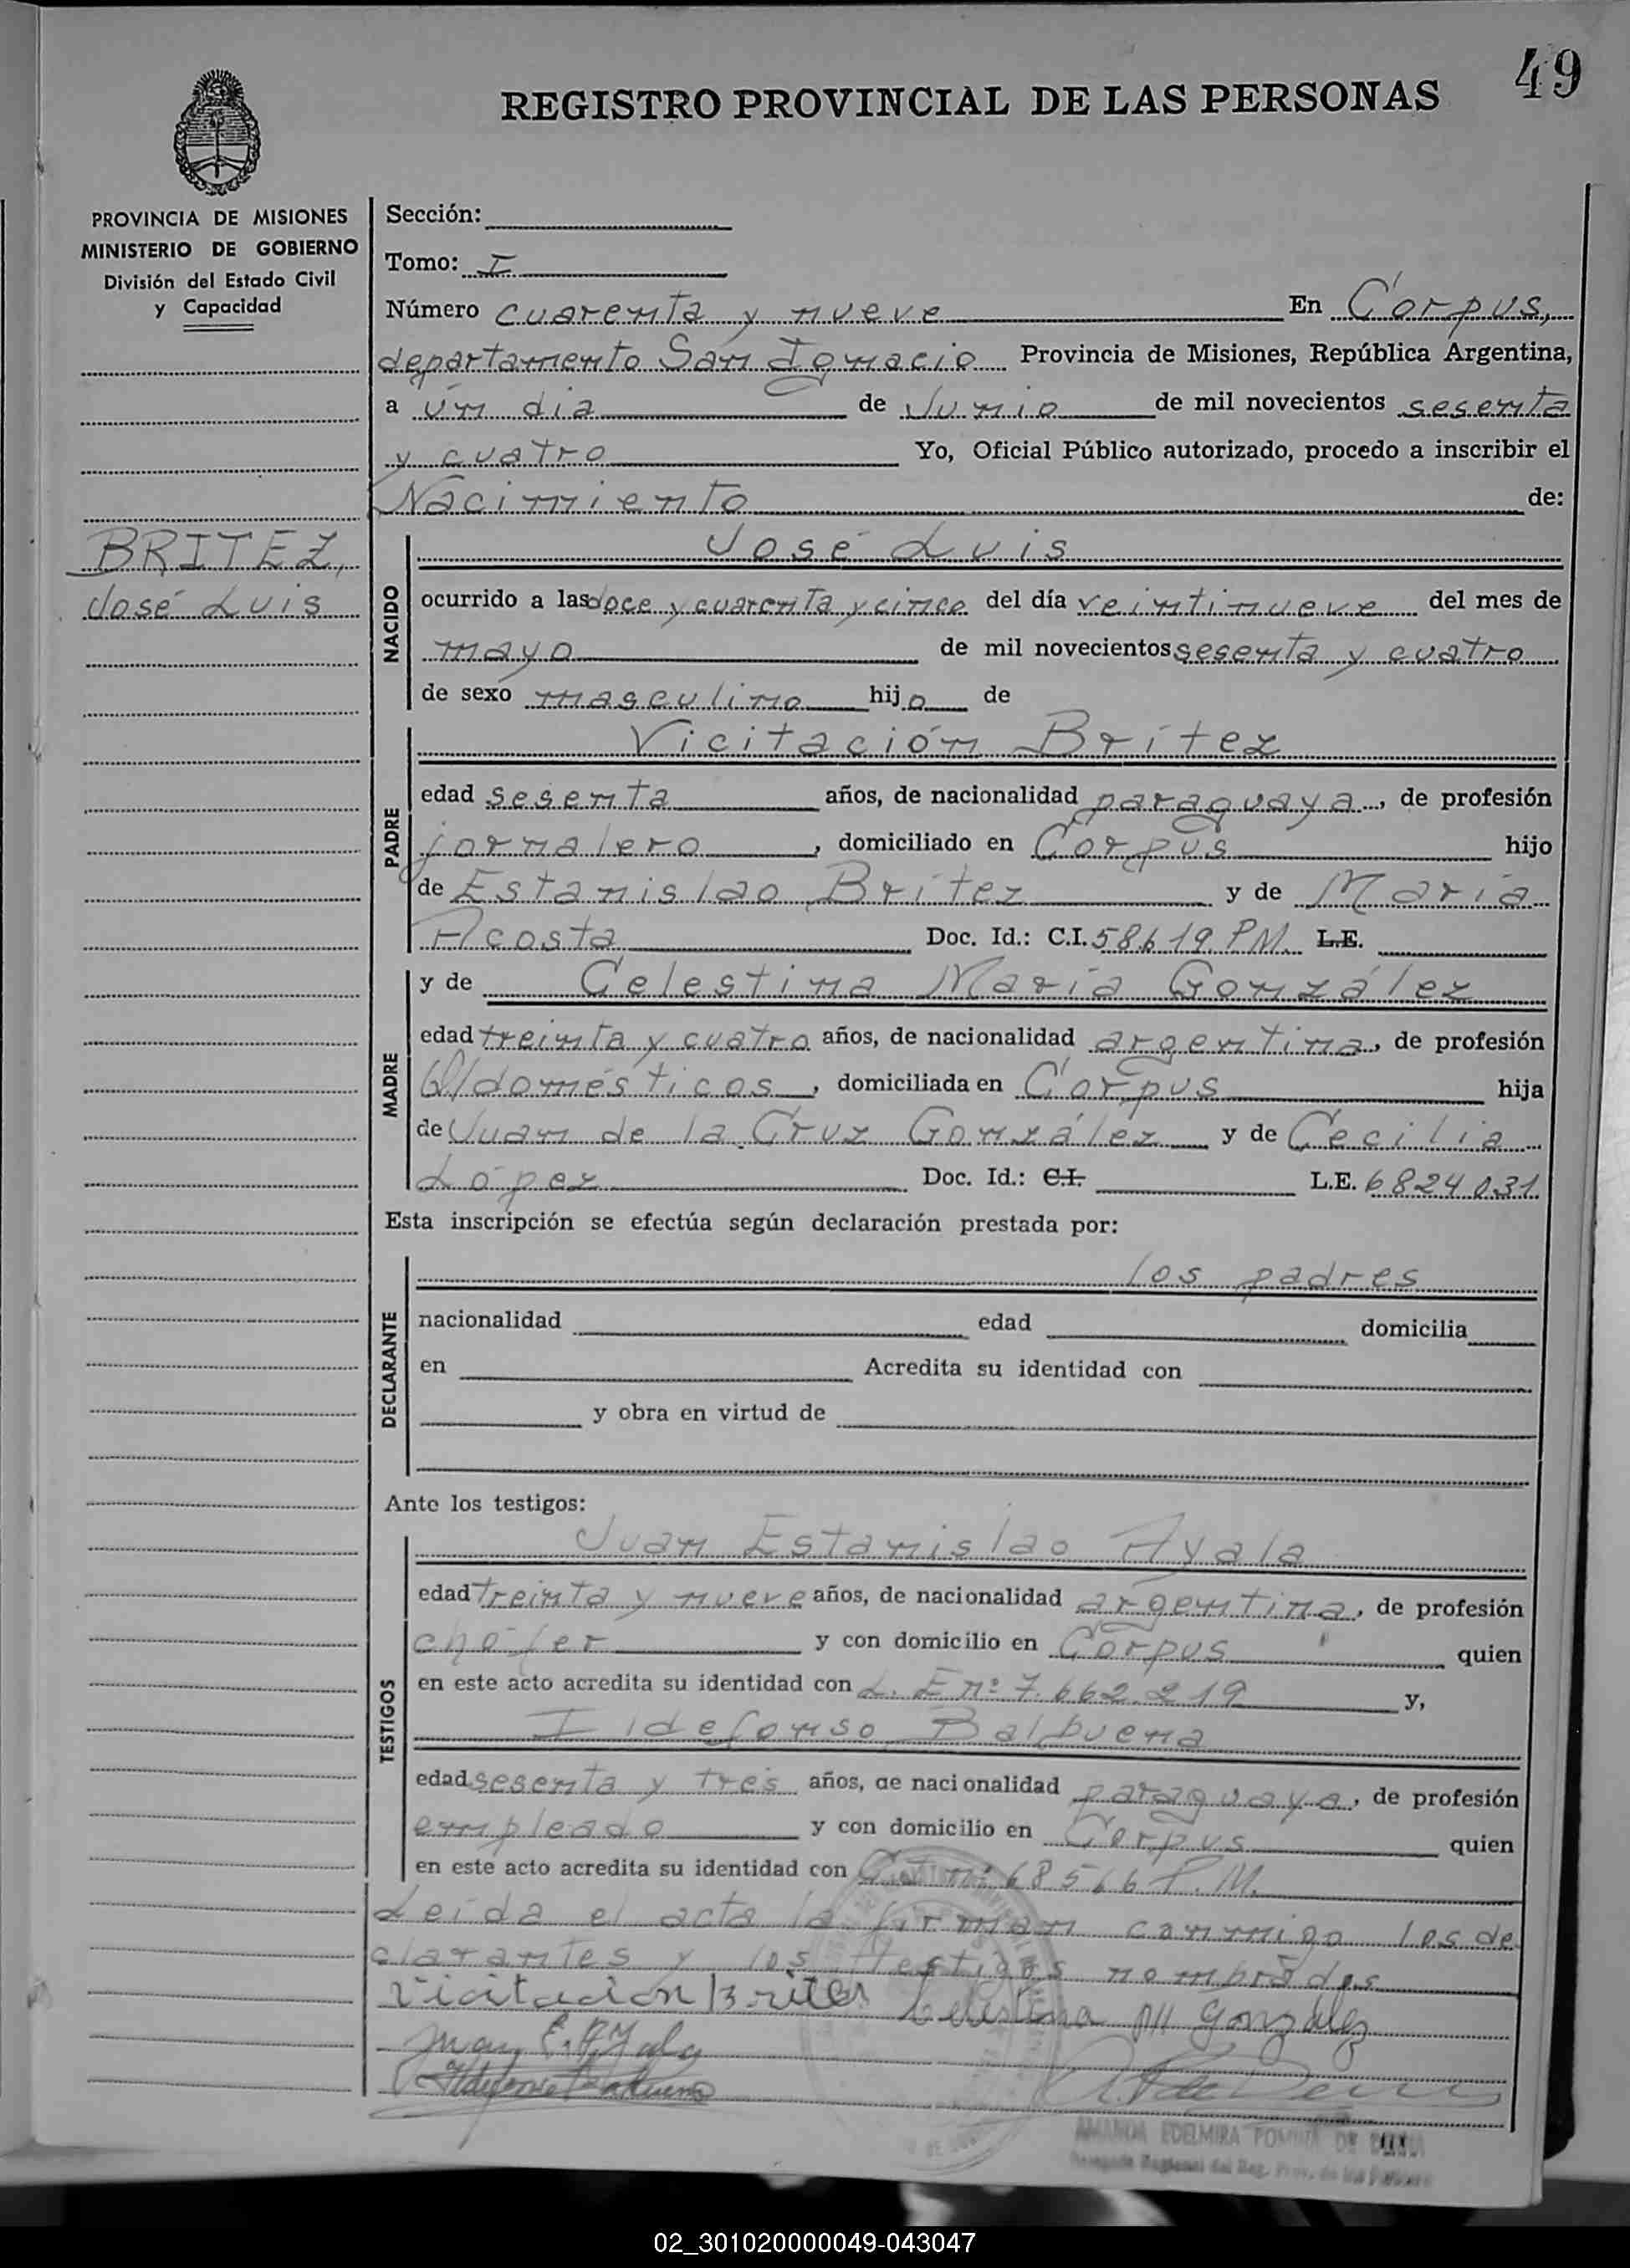 49
REGISTRO PROVINCIAL DE LAS PERSONAS
PROVINCIA DE MISIONES
MINISTERIO DE GOBIERNO
División del Estado Civil
y Capacidad
BRITEZ,
José Luis
Sección:
Tomo: I
Número cuarenta y nueve En Corpus,
departamento San Ignacio Provincia de Misiones, República Argentina,
a un dia de Junio de mil novecientos sesenta
y cuatro Yo, Oficial Público autorizado, procedo a inscribir el
Nacimiento de:
NACIDO
José Luis
ocurrido a las doce y cuarenta y cinco del día veintinueve del mes de
mayo de mil novecientos sesenta y cuatro
de sexo masculino hijo de
PADRE
Vicitación Brítez
edad sesenta años, de nacionalidad paraguaya, de profesión
jornalero, domiciliado en Corpus hijo
de Estanislao Brítez y de María
Acosta Doc. Id.: C.I. 58619 P.M. L.E.
MADRE
y de Celestina María González
edad treinta y cuatro años, de nacionalidad argentina, de profesión
Q/domésticos, domiciliada en Corpus hija
de Juan de la Cruz González y de Cecilia
López Doc. Id.: C.I. L.E. 6824031
Esta inscripción se efectúa según declaración prestada por:
DECLARANTE
los padres
nacionalidad edad domicilia
en Acredita su identidad con
y obra en virtud de
Ante los testigos:
TESTIGOS
Juan Estanislao Ayala
edad treinta y nueve años, de nacionalidad argentina, de profesión
chófer y con domicilio en Corpus quien
en este acto acredita su identidad con L. E nº 7.662.219 y,
Ildefonso Balbuena
edad sesenta y tres años, de nacionalidad paraguaya, de profesión
empleado y con domicilio en Corpus quien
en este acto acredita su identidad con C.I. nº 68566 P.M.
Leída el acta la firman conmigo los de
clarantes y los testigos nombrados
Vicitacion Britez Celestina M Gonzalez
Juan E. Ayala
Ildefonso Balbuena
AMANDA EDELMIRA DE
02_301020000049-043047